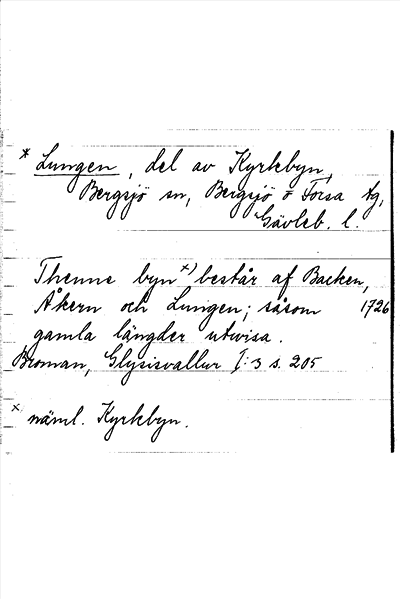 * Lungen, del av Kyrkbyn,
Bergsjö sn, Bergsjö o Forsa tg,
Gävleb. l.
Thenne byn x) består af Backen,
Åkern och Lungen; såsom 1726
gamla längder utwisa.
Broman, Glysisvallur I: 3 s. 205
x näml. Kyrkbyn.